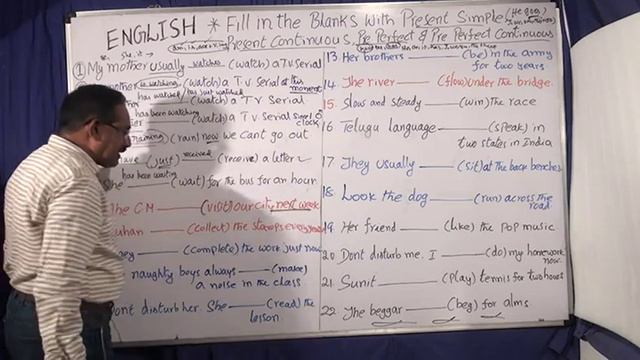 ENGLISH * Fill in the Blanks With Present Simple (He goes
Present Continuous, Pre Perfect & Pre Perfect Continuous
1 My mother usually watches (watch) a TV serial
mother is watching (watch) a TV serial at this moment
has watched / has just watched (watch) a TV serial
has been watching (watch) a TV serial since 0 clock
raining (rain) now we cant go out
have (just) received (receive) a letter
She has been waiting (wait) for the bus for an hour
The CM (visit) our city next week
(collect) the stamps every
(complete) the work just now
naughty boys always (make)
a noise in the class
Dont disturb her. She (read) the
lesson
13 Her brothers (be) in the army
for two years.
14 The river (flow) under the bridge.
15 Slow and steady (win) the race
16 Telugu language (speak) in
two states in India
17 They usually (sit) at the back benches
18 Look the dog (run) across the
road
19 Her friend (like) the pop music
20 Dont disturb me. I (do) my homework
now
21 Sunit (play) tennis for two hours
22 The beggar (beg) for alms